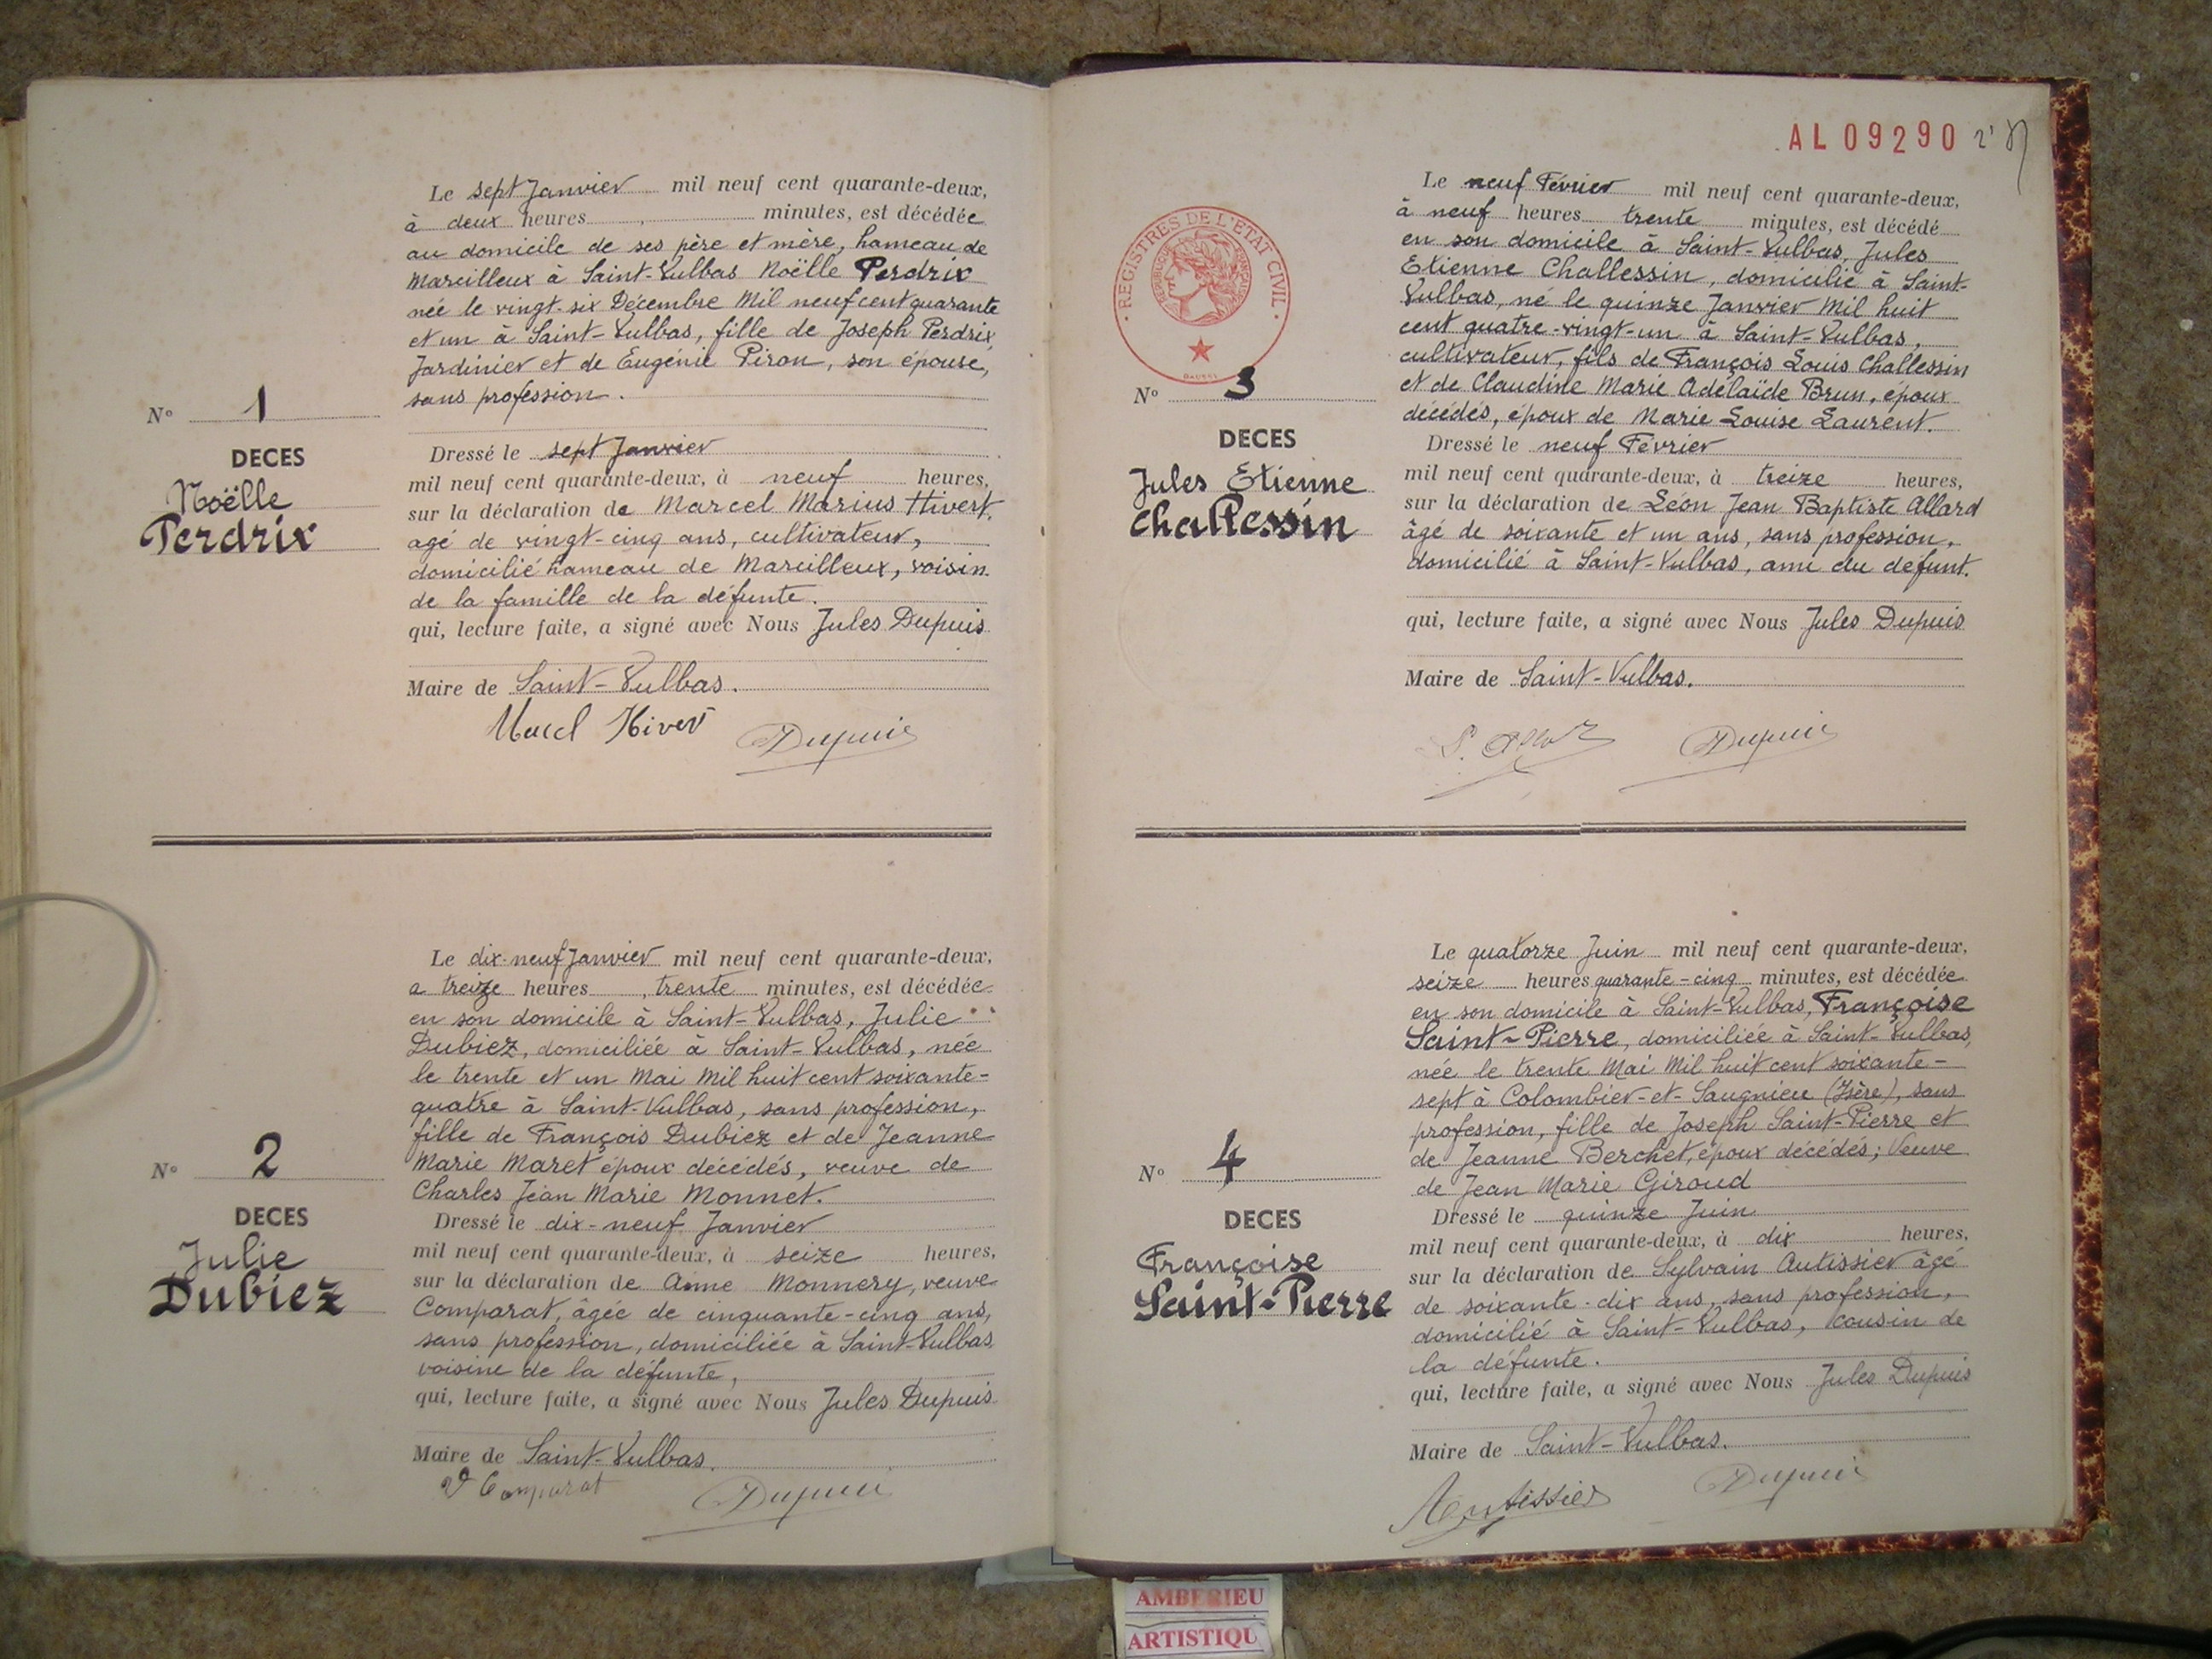 Le sept Janvier mil neuf cent quarante-deux,
à deux heures minutes, est décédée
au domicile de ses père et mère, hameau de
Marcilleux à Saint-Vulbas Noëlle Perdrix
née le vingt-six Décembre Mil neuf cent quarante
et un à Saint-Vulbas, fille de Joseph Perdrix,
Jardinier et de Eugénie Piron, son épouse,
sans profession.
N° 1
DECES
Noëlle
Perdrix
Dressé le sept Janvier
mil neuf cent quarante-deux, à neuf heures,
sur la déclaration de Marcel Marius Hivert,
agé de vingt-cinq ans, cultivateur,
domicilié hameau de Marcilleux, voisin
de la famille de la défunte.
qui, lecture faite, a signé avec Nous Jules Dupuis
Maire de Saint-Vulbas.
Marcel Hivert Dupuis
Le dix-neuf Janvier mil neuf cent quarante-deux,
a treize heures, trente minutes, est décédée
en son domicile à Saint-Vulbas, Julie
Dubiez, domiciliée à Saint-Vulbas, née
le trente et un Mai Mil huit cent soixante-
quatre à Saint-Vulbas, sans profession,
fille de François Dubiez et de Jeanne
Marie Maret époux décédés, veuve de
Charles Jean Marie Monnet.
N° 2
DECES
Julie
Dubiez
Dressé le dix-neuf Janvier
mil neuf cent quarante-deux, à seize heures,
sur la déclaration de Anne Monnery, veuve
Comparat, âgée de cinquante-cinq ans,
sans profession, domiciliée à Saint-Vulbas,
voisine de la défunte,
qui, lecture faite, a signé avec Nous Jules Dupuis
Maire de Saint-Vulbas.
Comparat Dupuis
AL 09290
REGISTRES DE L'ETAT CIVIL
REPUBLIQUE FRANÇAISE
Le neuf Février mil neuf cent quarante-deux,
à neuf heures trente minutes, est décédé
en son domicile à Saint-Vulbas, Jules
Etienne Challessin, domicilié à Saint-
Vulbas, né le quinze Janvier Mil huit
cent quatre-vingt-un à Saint-Vulbas,
cultivateur, fils de François Louis Challessin
et de Claudine Marie Adélaïde Brun, époux
décédés, époux de Marie Louise Laurent.
N° 3
DECES
Jules Etienne
Challessin
Dressé le neuf Février
mil neuf cent quarante-deux, à treize heures,
sur la déclaration de Léon Jean Baptiste Allard
âgé de soixante et un ans, sans profession,
domicilié à Saint-Vulbas, ami du défunt.
qui, lecture faite, a signé avec Nous Jules Dupuis
Maire de Saint-Vulbas.
Dupuis
Le quatorze Juin mil neuf cent quarante-deux,
seize heures quarante-cinq minutes, est décédée
en son domicile à Saint-Vulbas, Françoise
Saint-Pierre, domiciliée à Saint-Vulbas,
née le trente Mai Mil huit cent soixante-
sept à Colombier-et-Saugnieu (Isère), sans
profession, fille de Joseph Saint-Pierre et
de Jeanne Berchet, époux décédés; Veuve
de Jean Marie Giroud
N° 4
DECES
Françoise
Saint-Pierre
Dressé le quinze Juin
mil neuf cent quarante-deux, à dix heures,
sur la déclaration de Sylvain Autissier âgé
de soixante-dix ans, sans profession,
domicilié à Saint-Vulbas, cousin de
la défunte.
qui, lecture faite, a signé avec Nous Jules Dupuis
Maire de Saint-Vulbas.
Autissier Dupuis
AMBERIEU
ARTISTIQU